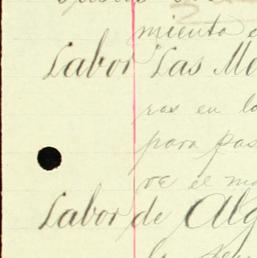 miento
Labor Las Mo
ras en la
para pas
ve el ma
Labor de Alg